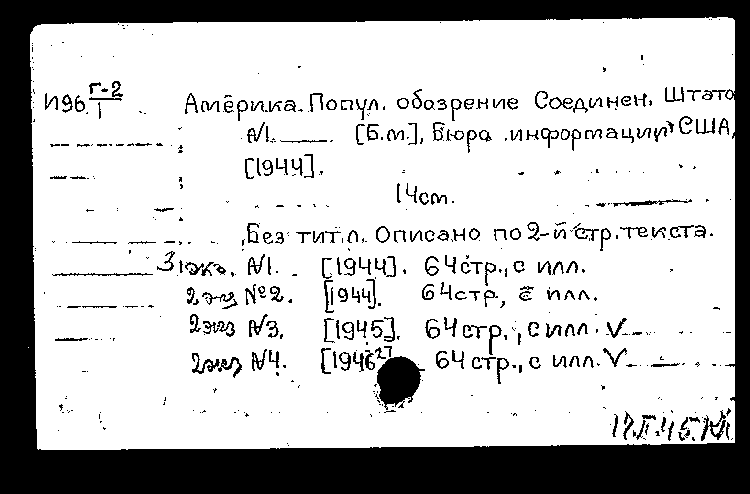 И96 Г-2/I Америка. Попул. обозрение Соединен. Штато
№1. [Б.м.], Бюро информации США,
[1944].
14см.
Без титл. Описано по 2-й стр. текста.
3 экз. №1. [1944]. 64стр., с илл.
2 экз №2. [1944]. 64стр., с илл.
2 экз №3. [1945]. 64стр., с илл. V
2 экз №4. [1946?] 64стр., с илл. V